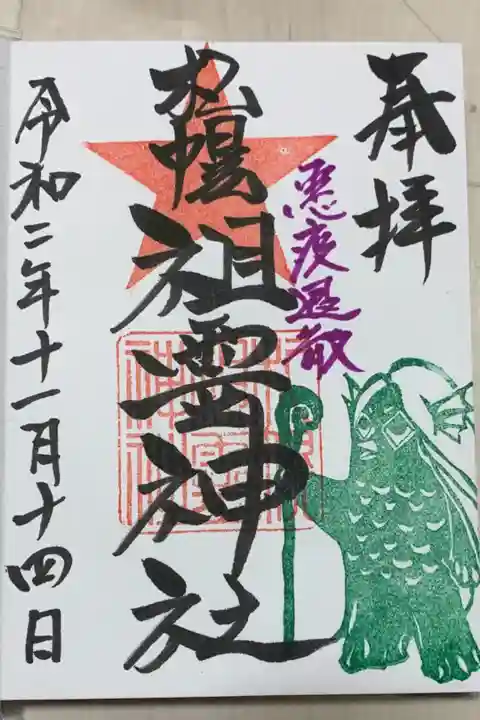 奉拝
悪疫退散
札幌祖霊神社
令和二年十一月十四日